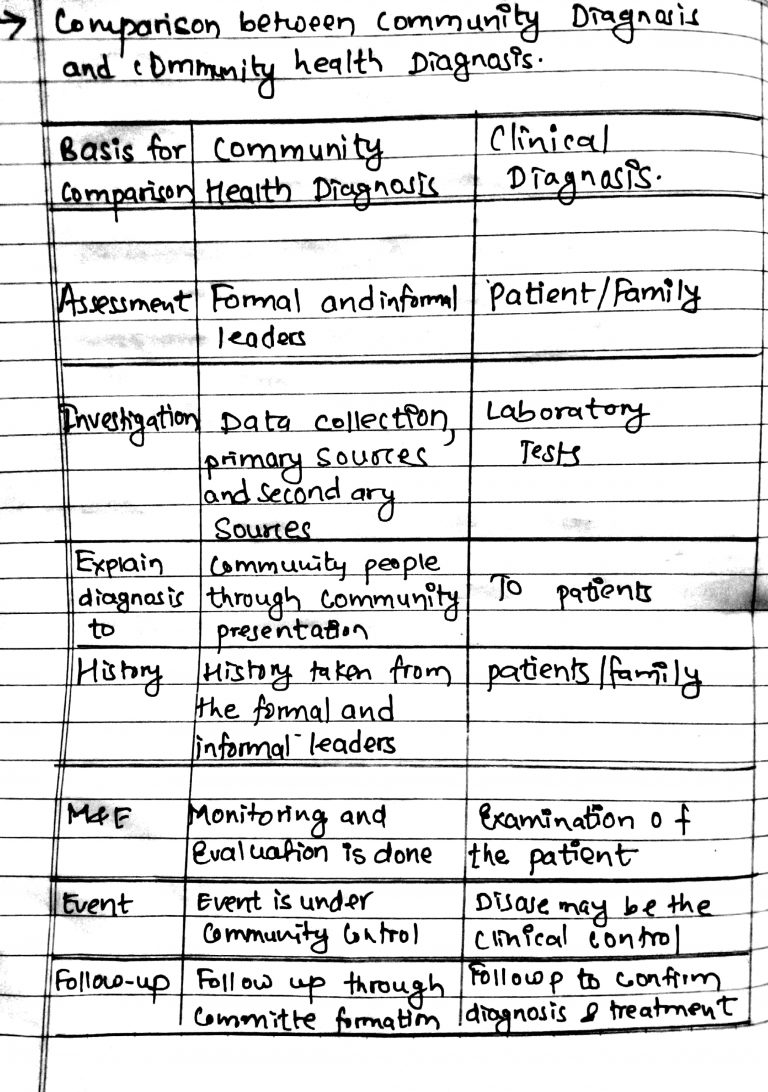 → Comparison between Community Diagnosis
and community health Diagnosis.
Basis for Comparison | Community Health Diagnosis | Clinical Diagnosis.
Assessment | Formal and informal leaders | Patient/Family
Investigation | Data collection, primary sources and second ary Sources | Laboratory Tests
Explain diagnosis to | Community people through community presentation | To patients
History | History taken from the formal and informal leaders | patients/family
M&E | Monitoring and Evaluation is done | Examination of the patient
Event | Event is under Community Control | Disase may be the clinical control
Follow-up | Follow up through Committe formation | Followp to confirm diagnosis & treatment